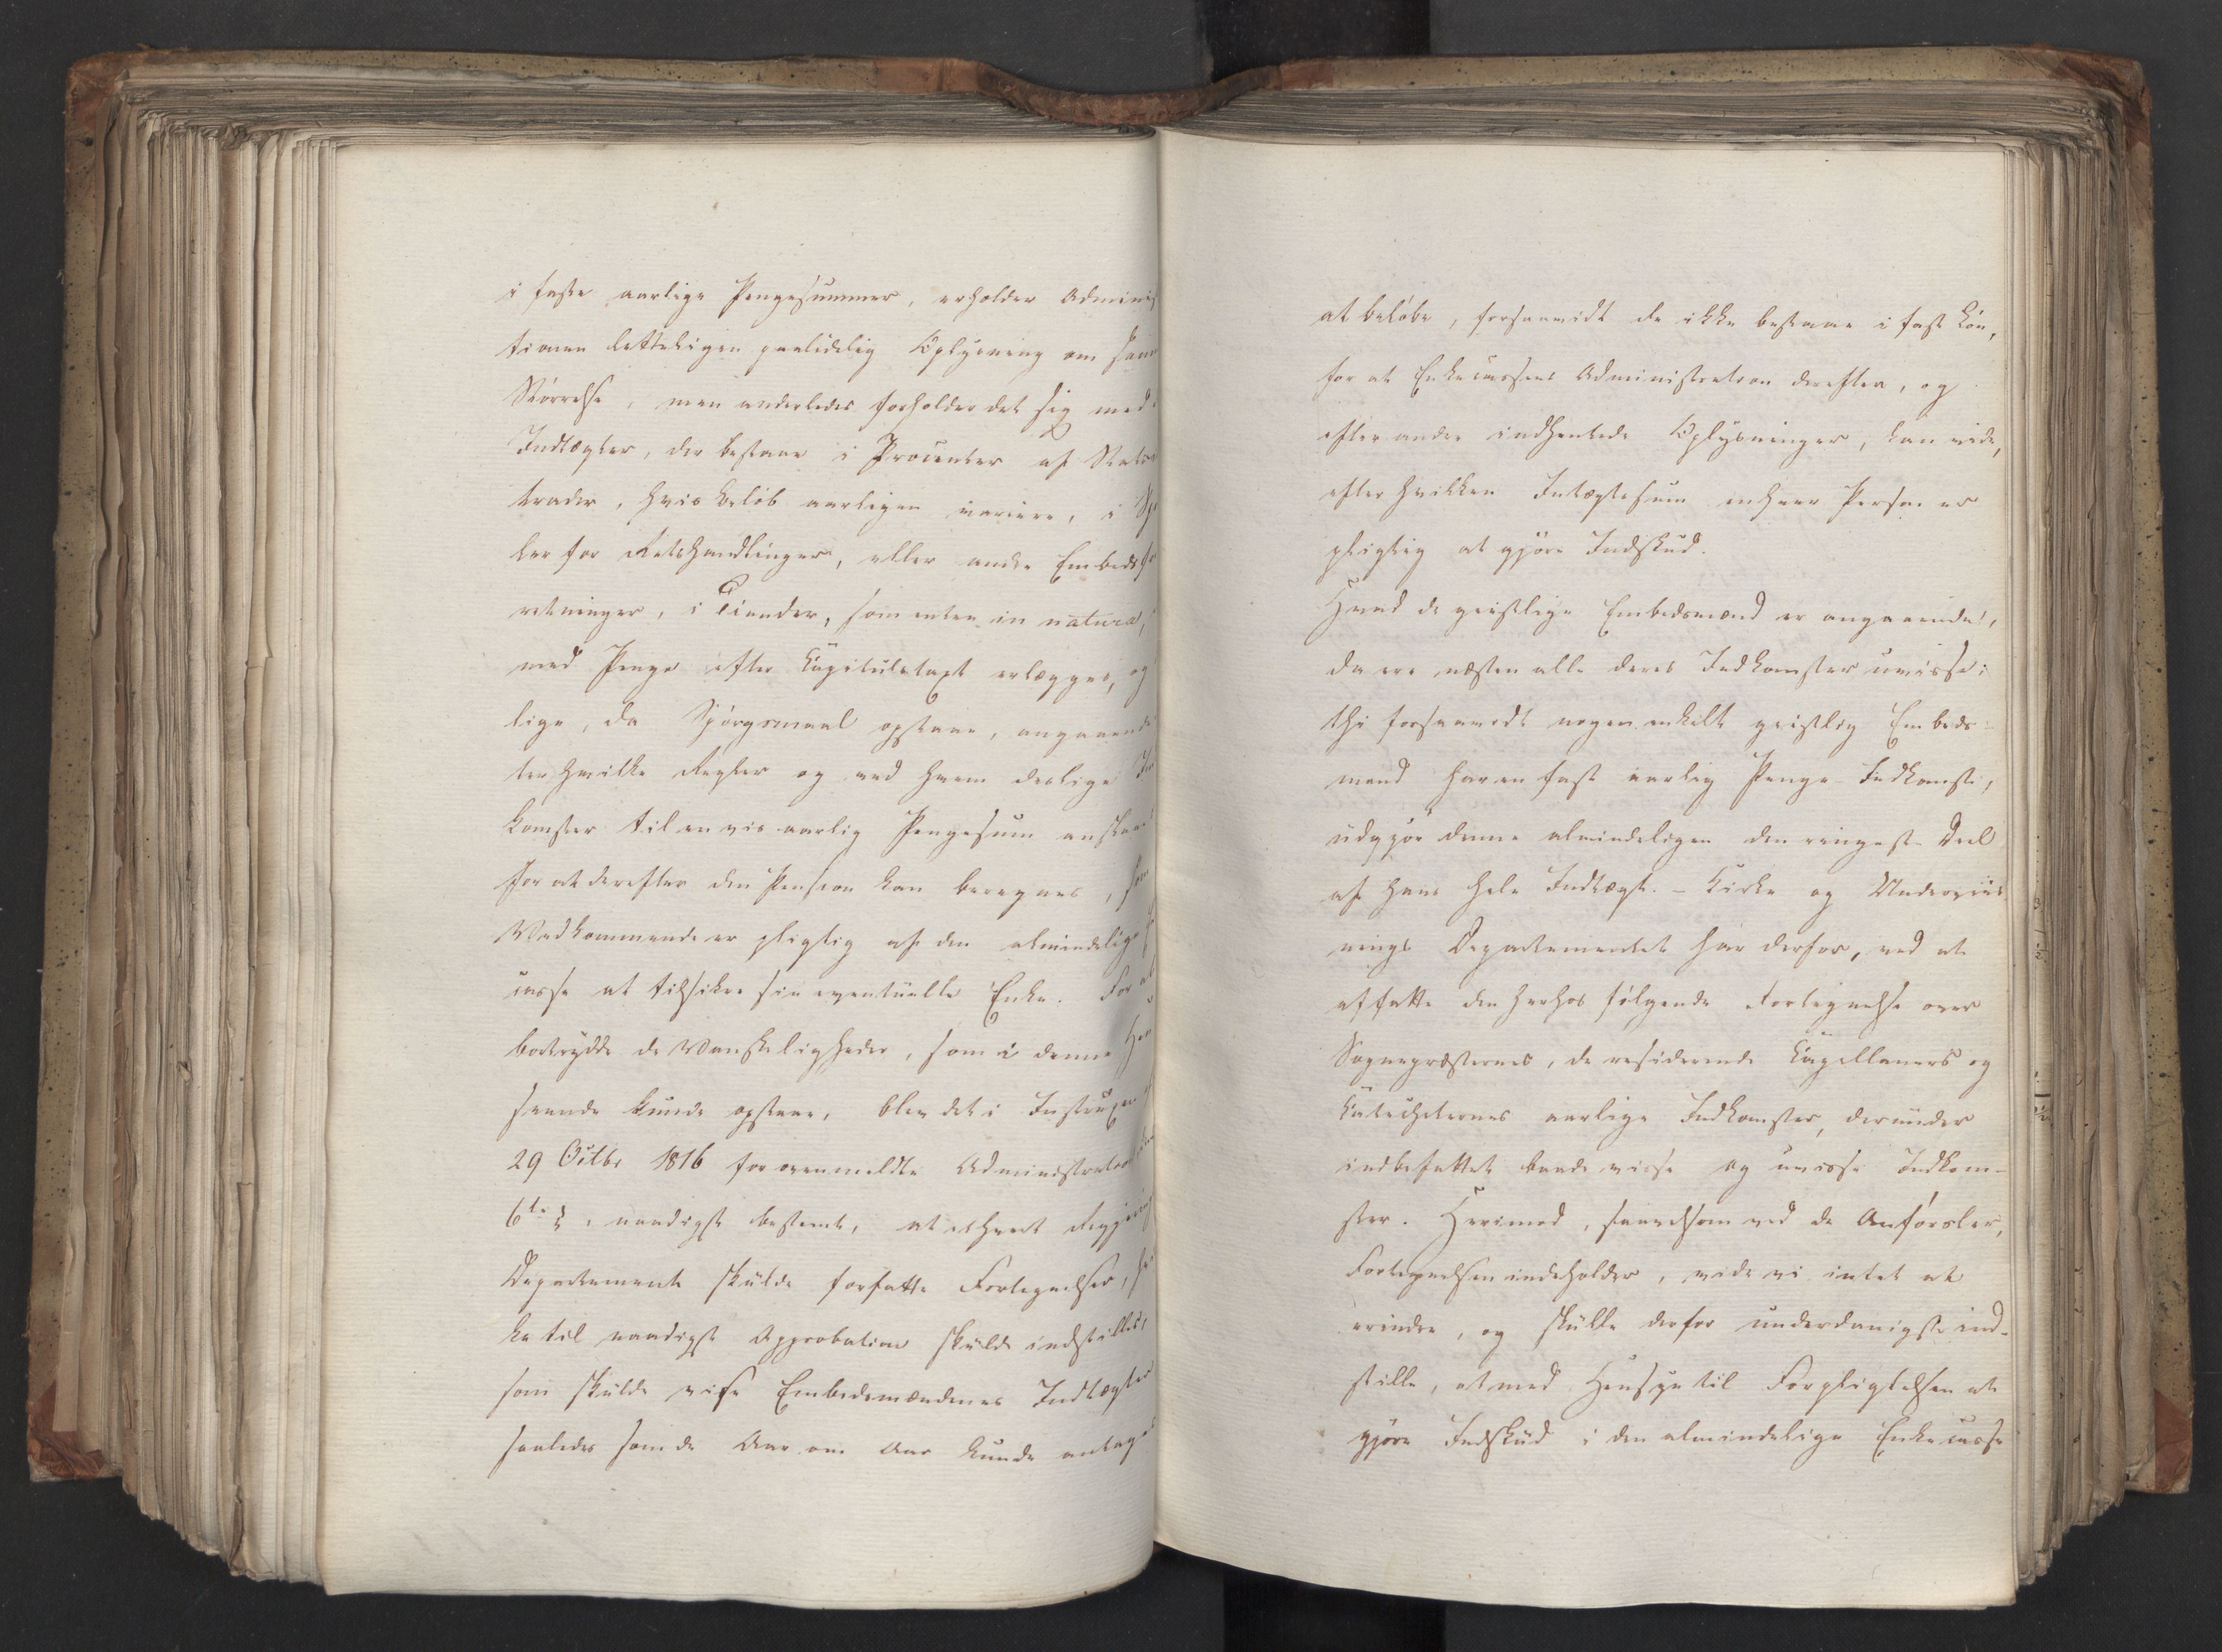 i faste aarlige Pengesummer, erholder Adminis
tionen letteligen paalidelig Oplysning om sam
Størrelse, men anderledes forholder det sig med
Indtægter, der bestaae i Procenter af
trader, hvis beløb aarligen variere, i
ler for Retshandlinger, eller andre Embeds
retninger, i Tiender, som enten in natura,
med Penge efter Capitulstaxt erlægges, og
lige, da Spørgsmaal opstaae, angaaende
ter hvilke Regler og ved hvem deslige
komster til en vis aarlig Pengesum anslaae
for at derefter den Pension kan beregnes, som
Vedkommende er pligtig af den almindelige
casse at tilsikre sin eventuelle Enke. For at
bortrydde de Vanskeligheder, som i denne Hen
seende kunde opstaae, blev det i Instruxen
29 Octbr 1816 for ovenmeldte Administration
6te §, naadigst bestemt, at ethvert Regjerings
Departement skulde forfatte Fortegnelser,
ke til naadigst Approbation skulde indstilles,
som skulde vise Embedsmændenes Indtægter
saaledes som de Aar om Aar kunde antages
at beløbe, forsaavidt de ikke bestaae i fast Løn,
for at Enkecassens Administration derefter, og
efter andre indhentede Oplysninger, kan vide,
efter hvilken Intægtssum enhver Person er
pligtig at gjøre Indskud.
Hvad de geistlige Embedsmænd er angaaende,
da ere næsten alle deres Indkomster uvisse;
thi forsaavidt nogen enkelt geistlig Embeds-
mand har en fast aarlig Penge-Indkomst,
udgjør denne almindeligen den ringeste Deel
af hans hele Indtægt. - Kirke og Underviis
nings Departementet har derfor, ved at
affatte den herhos følgende Fortegnelse over
Sognepræsternes, de residerende Capellaners og
Catecheternes aarlige Indkomster, derunder
indbefattet baade visse og uvisse Indkom-
ster. Herimod, saavelsom ved de Anførsler,
Fortegnelsen indeholder, vide vi intet at
erindre, og skulle derfor underdanigst ind-
stille, at med Hensyn til Forpligtelsen at
gjøre Indskud i den almindelige Enkecasse